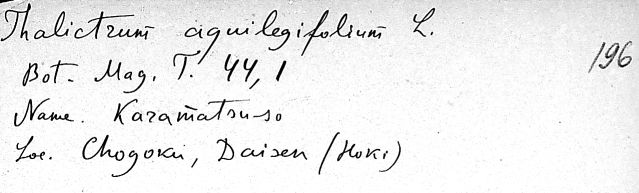 Thalictrum aquilegifolium L.
196
Bot. Mag. T. 44, 1
Name. Karamatsu-so
Loc. Chogoku, Daisen (Hoki)